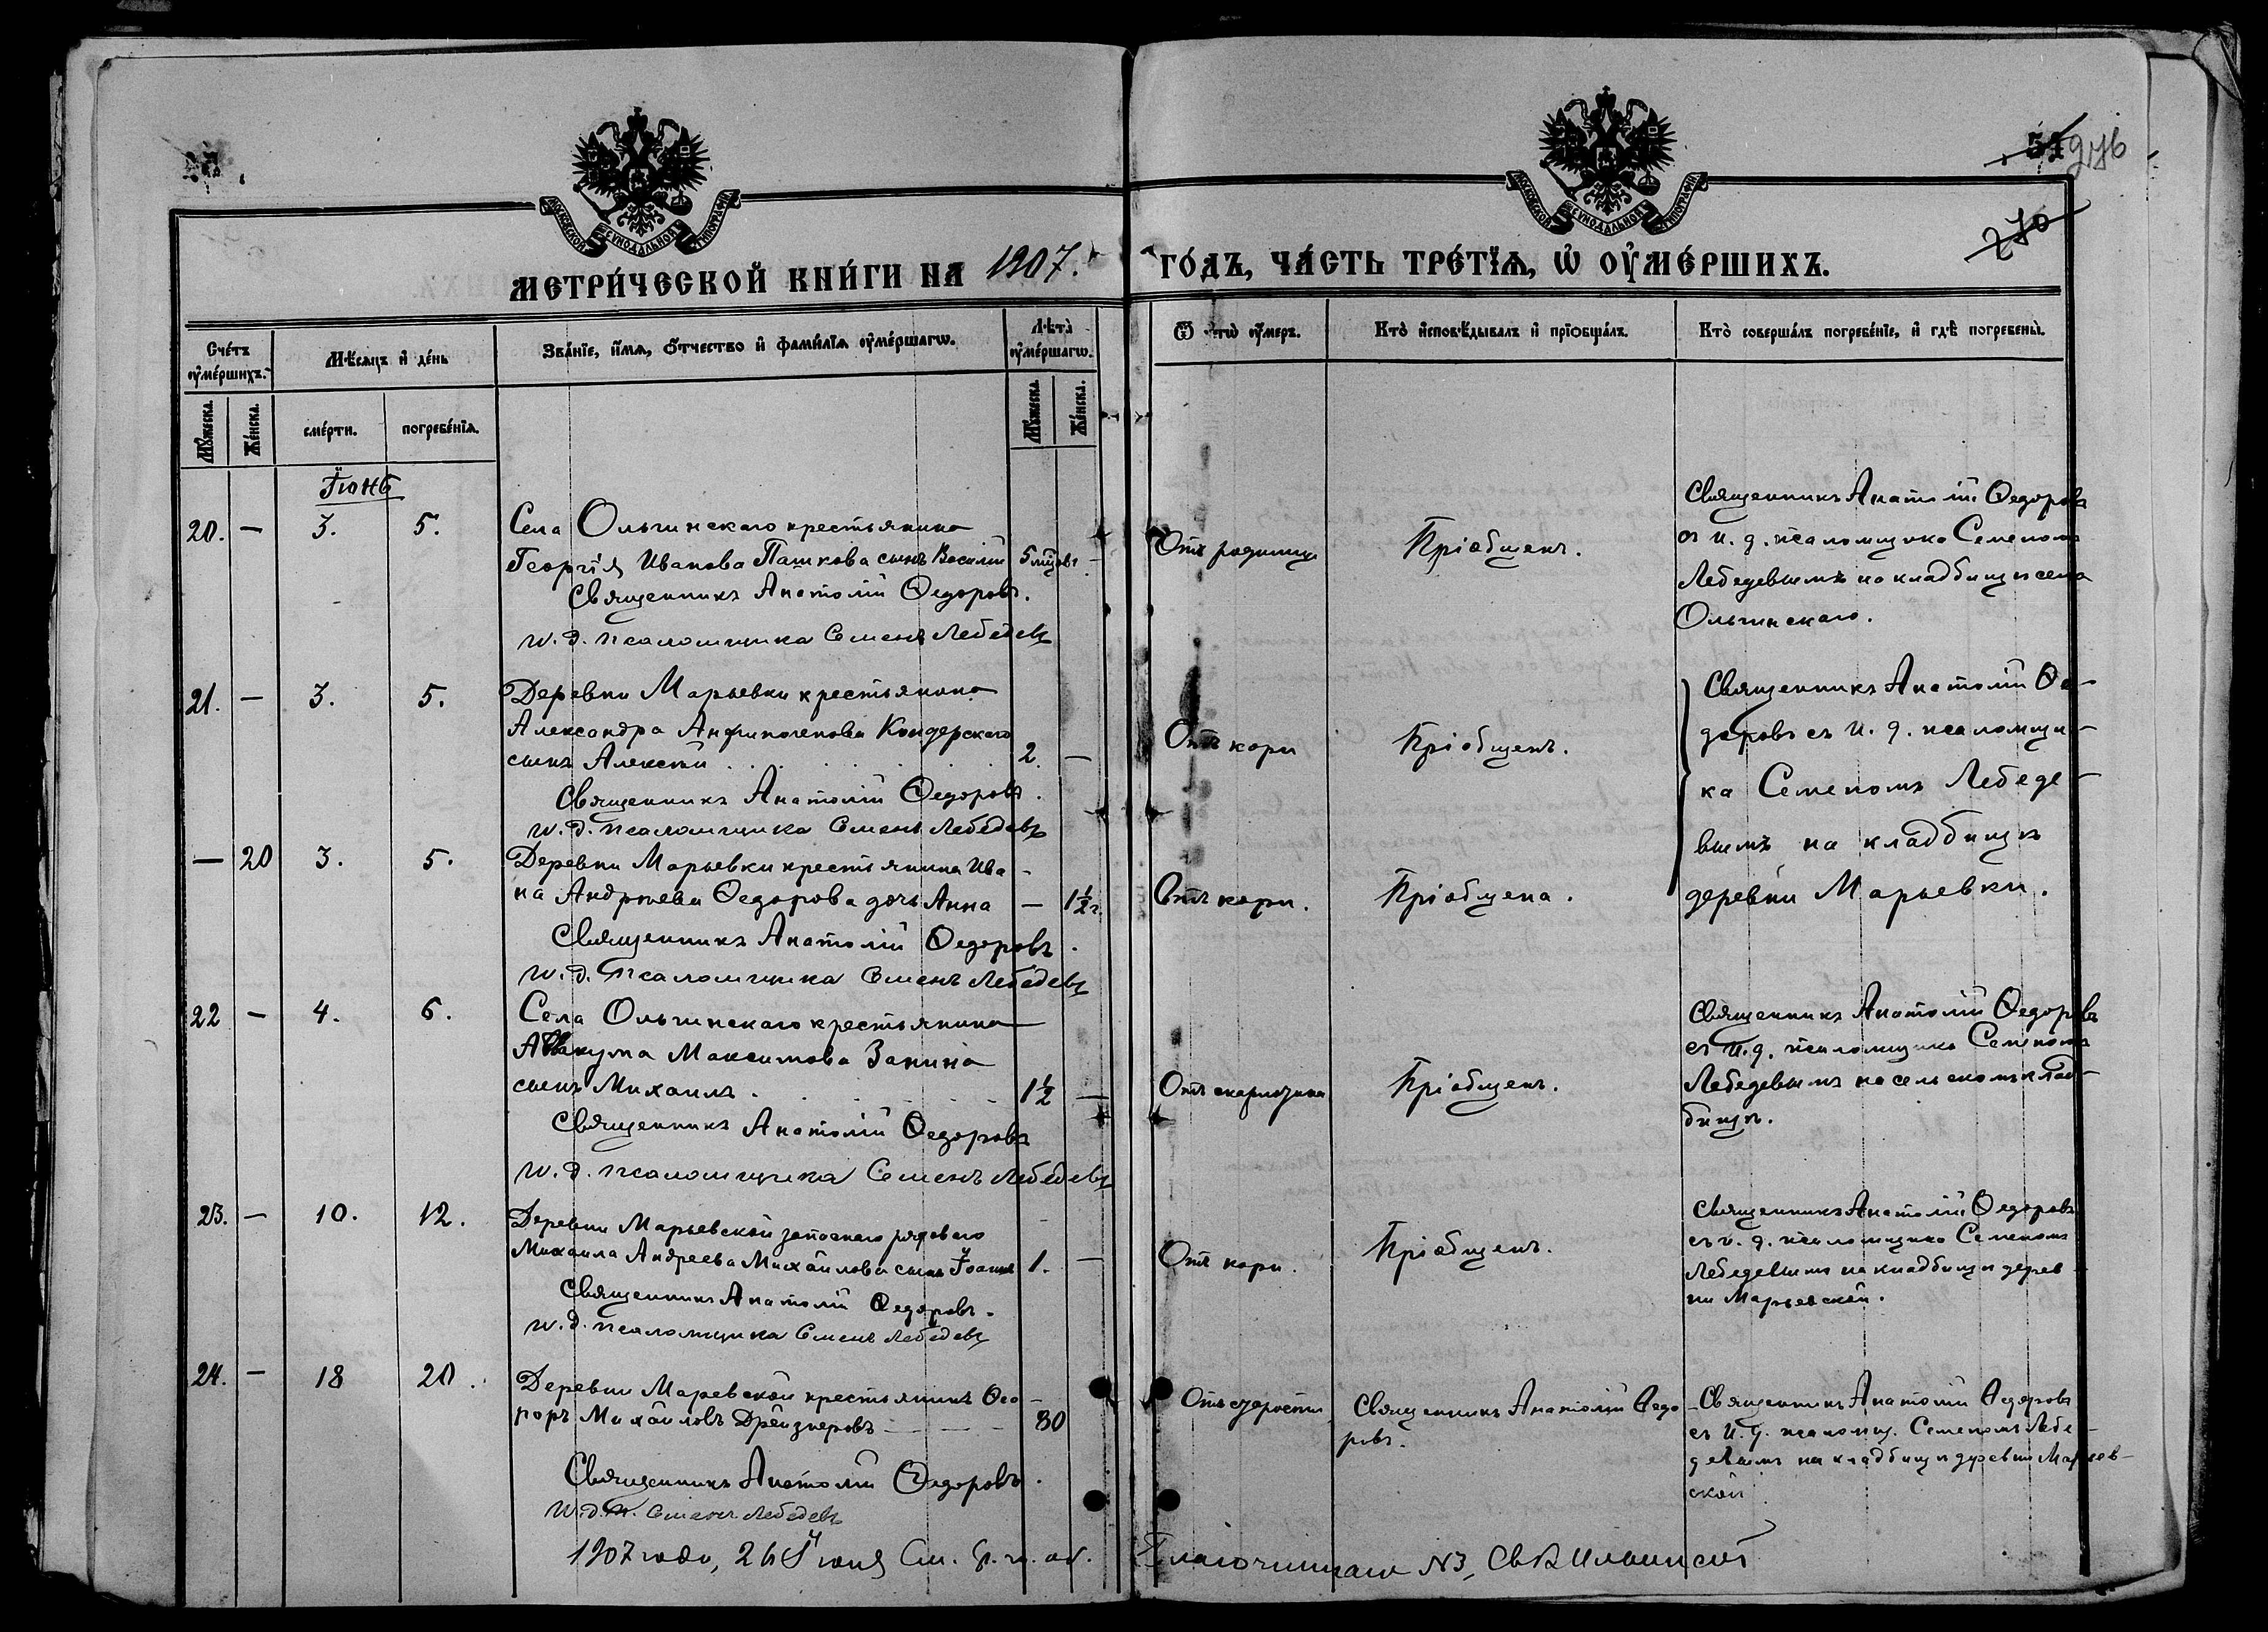 МОСКОВСКОЙ СѴНОДАЛЬНОЙ ТИПОГРАФІИ
МОСКОВСКОЙ СѴНОДАЛЬНОЙ ТИПОГРАФІИ
276
270
МЕТРИ́ЧЕСКОЙ КНИ́ГИ НА 1907.
ГО́ДЪ, ЧА́СТЬ ТРЕ́ТЇѦ, Ѡ҆ ОУ҆МЕ́РШИХЪ.
Сче́тъ оу҆ме́ршихъ.
Мѣ́сѧцъ и҆ де́нь
Зва́нїе, и҆́мѧ, ѻ҆́тчество и҆ фами́лїѧ оу҆ме́ршагѡ.
Лѣ́та̀ оу҆ме́ршагѡ.
Ѿ чегѡ̀ оу҆́меръ.
Кто̀ и҆сповѣ́дывалъ и҆ прїѡбща́лъ.
Кто̀ соверша́лъ погребе́нїе, и҆ гдѣ̀ погребены̀.
Мꙋ́жеска.
Же́нска.
сме́рти.
погребе́нїѧ.
Мꙋ́жеска.
Же́нска.
Іюнь
20. — 3. 5.
Села Ольгинскаго крестьянина
Георгія Иванова Пашкова сынъ Василій 5 мцовъ —
Священникъ Анатолій Ѳедоровъ.
И. д. псаломщика Семенъ Лебедевъ
Отъ родимца
Пріобщенъ.
Священникъ Анатолій Ѳедоровъ
съ и. д. псаломщика Семеномъ
Лебедевымъ на кладбищѣ села
Ольгинскаго.
21. — 3. 5.
Деревни Марьевки крестьянина
Александра Анфиногенова Кондерскаго
сынъ Алексѣй 2. —
Священникъ Анатолій Ѳедоровъ.
И. д. псаломщика Семенъ Лебедевъ
Отъ кори
Пріобщенъ.
Священникъ Анатолій Ѳе-
доровъ съ и. д. псаломщи-
ка Семеномъ Лебеде-
вымъ на кладбищѣ
деревни Марьевки.
— 20 3. 5.
Деревни Марьевки крестьянина Ива-
на Андреева Ѳедорова дочь Анна — 1½ г.
Священникъ Анатолій Ѳедоровъ.
И. д. псаломщика Семенъ Лебедевъ
Отъ кори.
Пріобщена.
22 — 4. 6.
Села Ольгинскаго крестьянина
Аввакума Максимова Занина
сынъ Михаилъ. 1½ —
Священникъ Анатолій Ѳедоровъ
И. д. псаломщика Семенъ Лебедевъ
Отъ скарлатина
Пріобщенъ.
Священникъ Анатолій Ѳедоровъ
съ и. д. псаломщика Семеномъ
Лебедевымъ на сельскомъ клад-
бищѣ.
23. — 10. 12.
Деревни Марьевской запаснаго рядового
Михаила Андреева Михайлова сынъ Іоаннъ 1. —
Священникъ Анатолій Ѳедоровъ.
И. д. псаломщика Семенъ Лебедевъ
Отъ кори.
Пріобщенъ.
Священникъ Анатолій Ѳедоровъ
съ и. д. псаломщика Семеномъ
Лебедевымъ на кладбищѣ дерев-
ни Марьевской.
24. — 18 20.
Деревни Марьевской крестьянинъ Ѳео-
доръ Михайловъ 80
Священникъ Анатолій Ѳедоровъ.
И. д. п. Семенъ Лебедевъ
Отъ старости
Священникъ Анатолій Ѳедо-
ровъ.
Священникъ Анатолій Ѳедоровъ
съ и. д. псаломщ. Семеномъ Лебе-
девымъ на кладбищѣ деревни Марьев-
ской
1907 года, 26 Іюня Благочинный №3, Св.